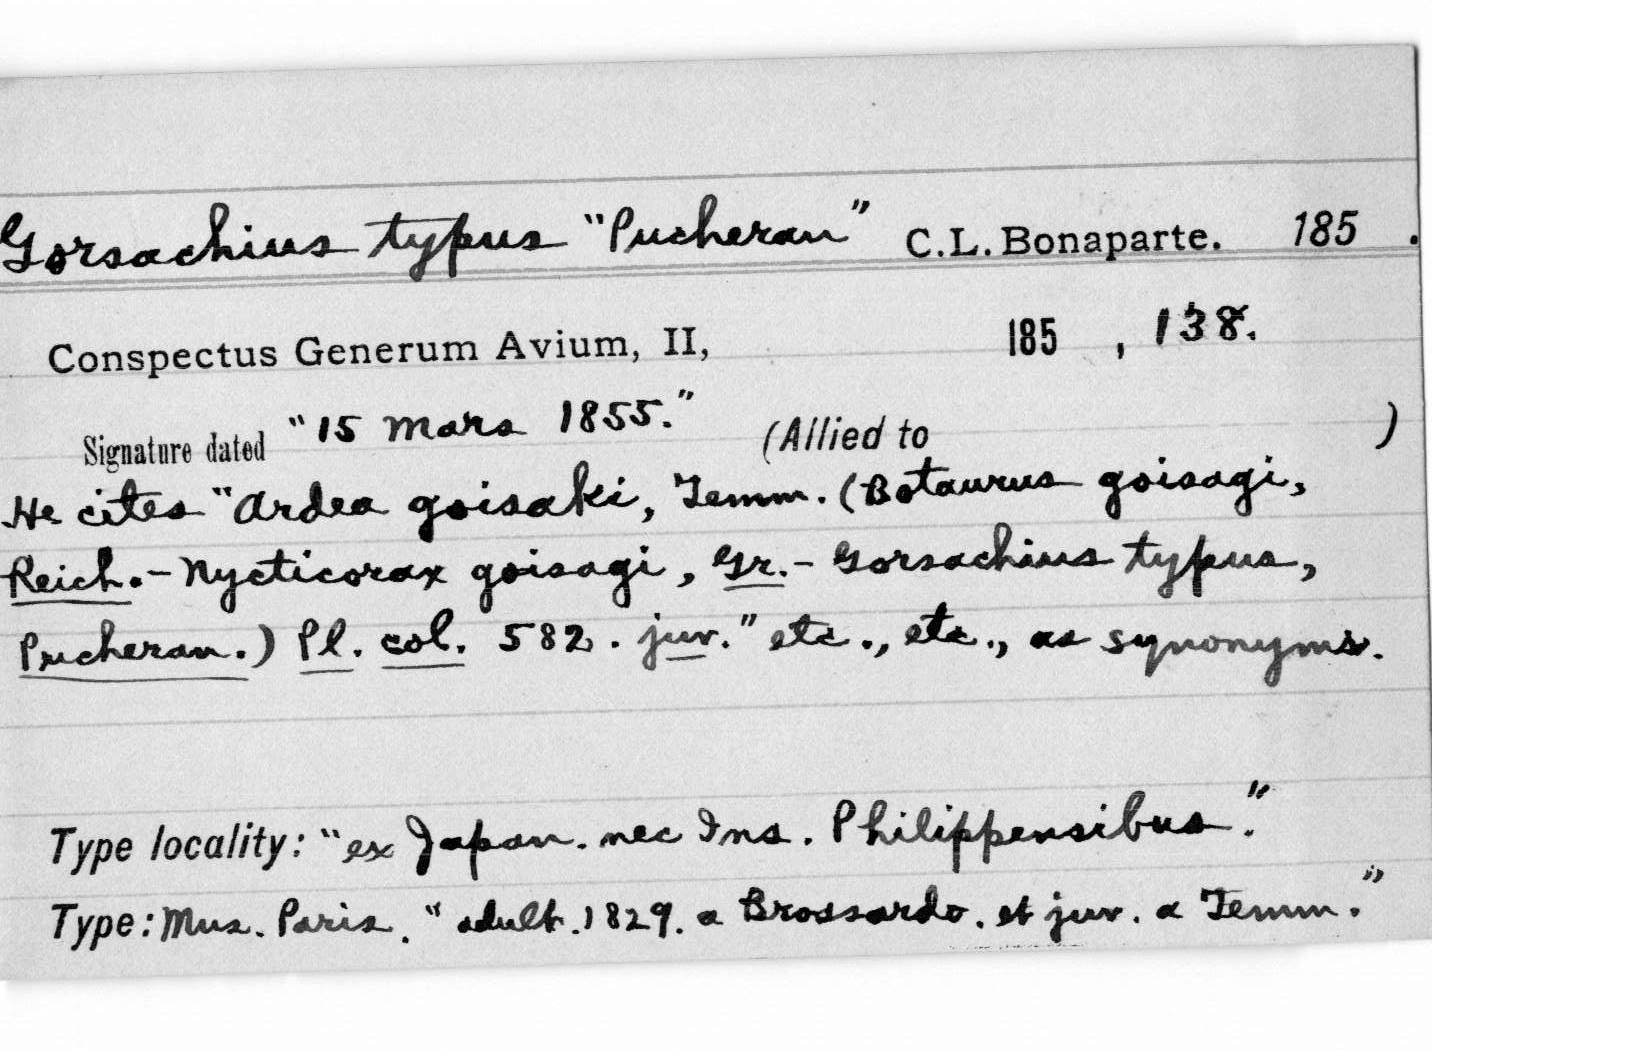 Gorsachius typus "Pucheran" C.L. Bonaparte. 185 .
Conspectus Generum Avium, II, 185 , 138.
Signature dated "15 Mars 1855." (Allied to )
He cites "Ardea goisaki, Temm. (Botaurus goisagi,
Reich.- Nycticorax goisagi, Gr.- Gorsachius typus,
Pucheran.) Pl. col. 582. juv." etc., etc., as synonyms.
Type locality: "ex Japan. nec Ins. Philippensibus."
Type: Mus. Paris. "adult. 1829. a Brossardo. et juv. a Temm."